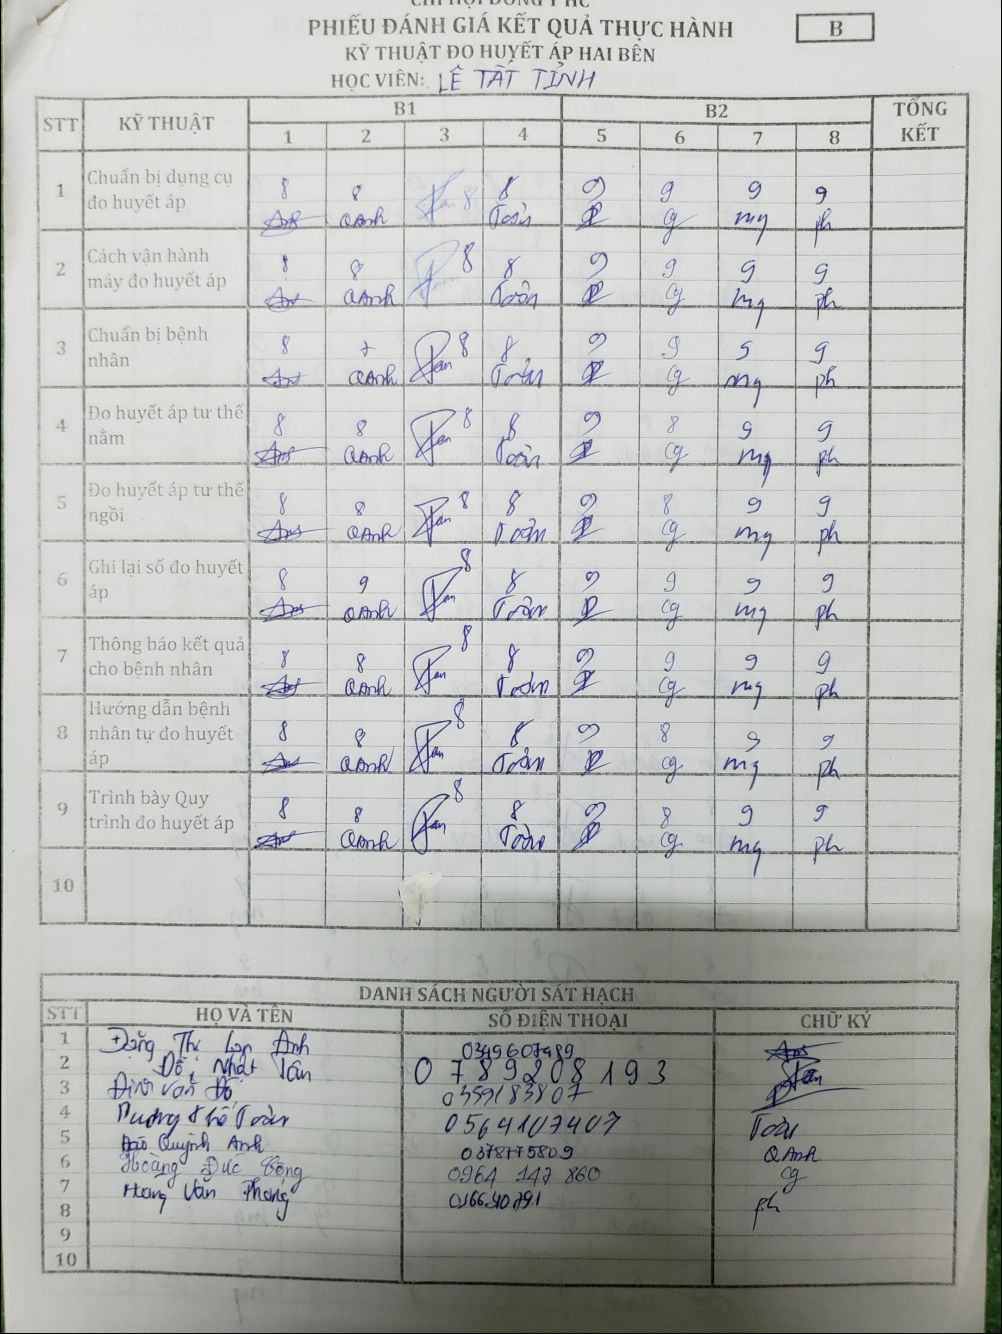 CHI HỘI ĐÔNG Y HC
PHIẾU ĐÁNH GIÁ KẾT QUẢ THỰC HÀNH
B
KỸ THUẬT ĐO HUYẾT ÁP HAI BÊN
HỌC VIÊN: LÊ TẤT TỈNH
STT KỸ THUẬT B1 B2 TỔNG KẾT
1 2 3 4 5 6 7 8
1 Chuẩn bị dụng cụ đo huyết áp 8 8 8 8 9 9 9 9
QAnh Toàn cg mg ph
2 Cách vận hành máy đo huyết áp 8 8 8 8 9 9 9 9
QAnh Toàn cg mg ph
3 Chuẩn bị bệnh nhân 8 7 8 8 9 9 9 9
QAnh Toàn cg mg ph
4 Đo huyết áp tư thế nằm 8 8 8 8 9 8 9 9
QAnh Toàn cg mg ph
5 Đo huyết áp tư thế ngồi 8 8 8 8 9 8 9 9
QAnh Toàn cg mg ph
6 Ghi lại số đo huyết áp 8 9 8 8 9 9 9 9
QAnh Toàn cg mg ph
7 Thông báo kết quả cho bệnh nhân 8 8 8 8 9 9 9 9
QAnh Toàn cg mg ph
8 Hướng dẫn bệnh nhân tự đo huyết áp 8 8 8 8 9 8 9 9
QAnh Toàn cg mg ph
9 Trình bày Quy trình đo huyết áp 8 8 8 8 9 8 9 9
QAnh Toàn cg mg ph
10
DANH SÁCH NGƯỜI SÁT HẠCH
STT HỌ VÀ TÊN SỐ ĐIỆN THOẠI CHỮ KÝ
1 Đặng Thị Lan Anh 0349607489
2 Đỗ Nhật Tân 0789208193
3 Đinh Văn Đô 0359183807
4 Dương Thế Toàn 0564107407 Toàn
5 Đào Quỳnh Anh 0378775809 QAnh
6 Hoàng Đức Công 0964 147 860 cg
7 Hoàng Văn Phong ph
8
9
10